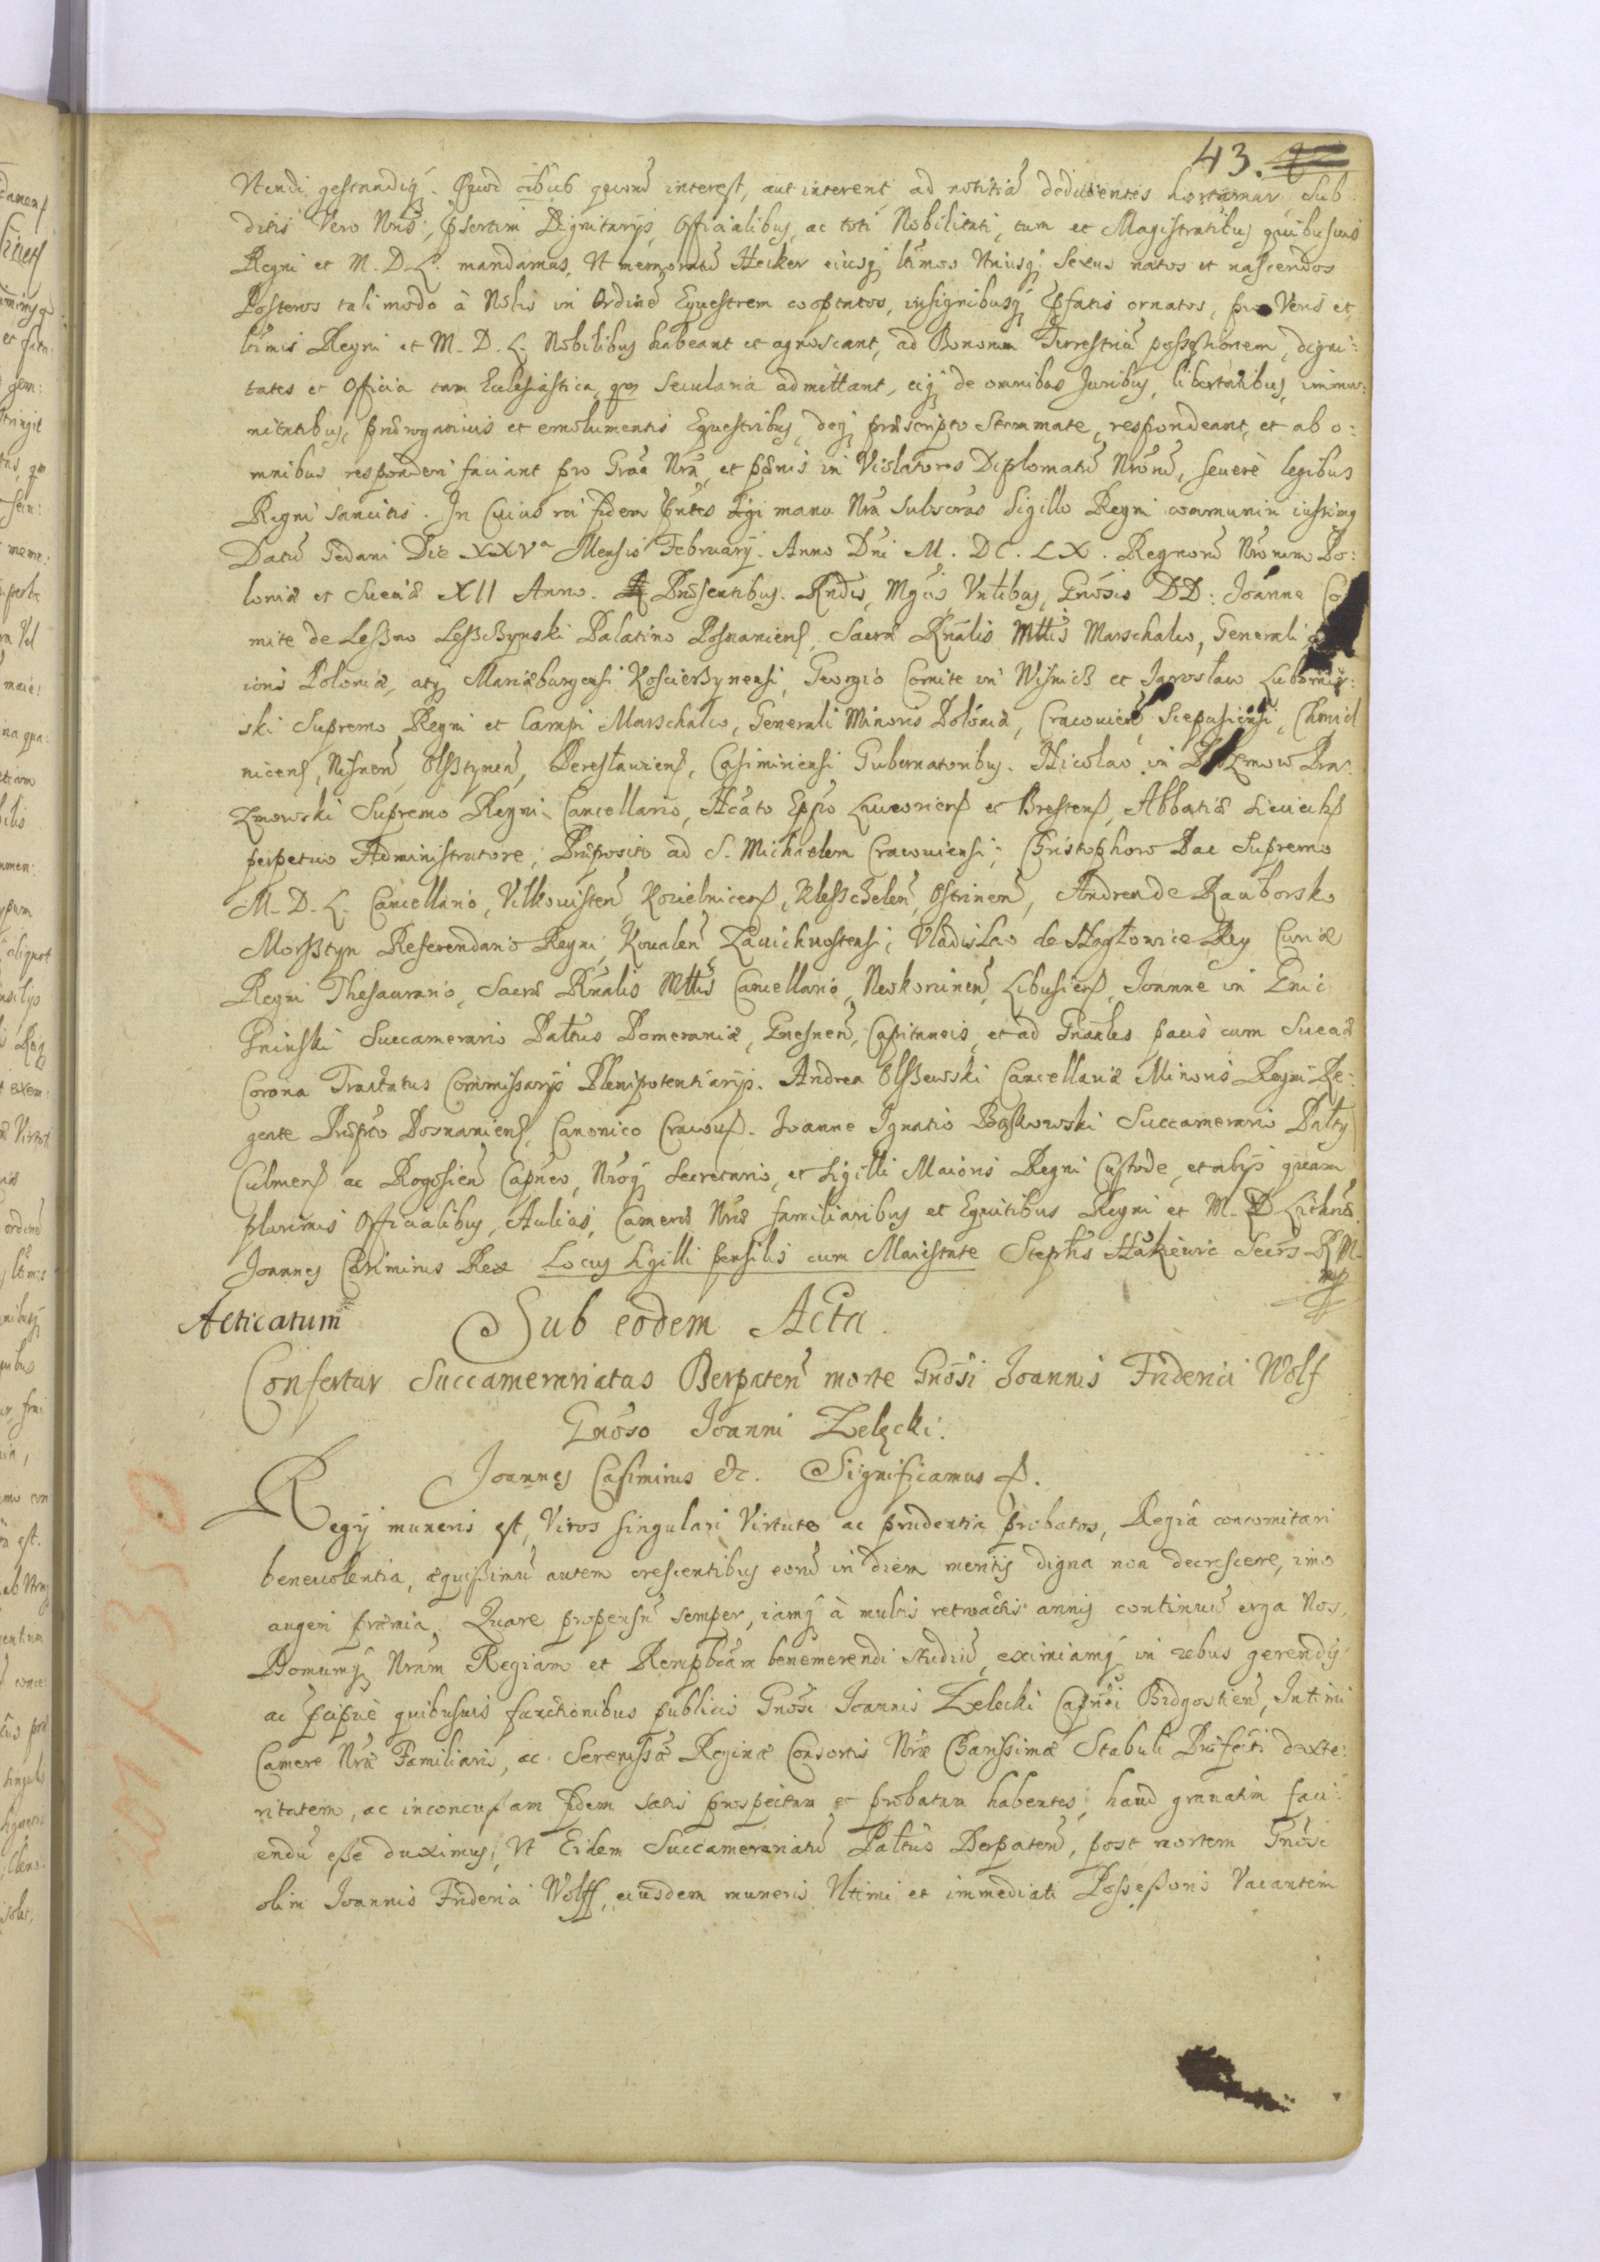 43.
Utendi gestandiq́. Quod oĩbus quorũ interest, aut intererit, ad notitiã deducentes hortamur, Sub
ditis Vero Nris, p̃sertim Dignitarijs, Officialibus, ac toti Nobilitati, tum et Magistratibus quibusuis
Regni et M. D. L. mandamus, Vt memoratũ Hecker eiusq́ ltimos Vtriusq́ Sexus natos et nascendos
Posteros tali modo à Nobis in Ordinẽ Equestrem cooptatos, insignibusq́ p̃fatis ornatos, pro Veris et
ltimis Regni et M. D. L. Nobilibus habeant et agnoscant, ad Bonorum Terrestriũ possessionem, digni:
tates et Officia tam Ecclesiastica, qm̃ Secularia admittant, eiq́ de omnibus Juribus, libertatibus, immu:
nitatibus, prærogatiuis et emolumentis Equestribus, deq́ præscripto Stemmate, respondeant, et ab o:
mnibus responderi faciant pro Grãa Nra, et pænis in Violatores Diplomatũ Nrorũ, seuerè legibus
Regni sancitis. In Cuius rei fidem p̃ntes manu Nra Subscrãs Sigillo Regni communiri iussimus
Datũ Gedani Die XXVa Mensis February. Anno Dñi M. DC. LX. Regnorũ Nrorum Po:
loniæ et Sueciæ XII Anno. Præsentibus. Rndis, Mgcis Vrilibus, Gnosis DD: Joanne Co
mite de Leßno Leßczynski Palatino Posnaniens, Sacræ Rnalis Mttis Marschalco, Generali
ioris Poloniæ, atq́ Mariæburgensi Koscierzynensi, Georgio Comite in Wisnicz et Jaroslaw Lubomir:
ski Supremo Regni et Campi Marschalco, Generali Minoris Poloniæ, Cracouien, Scepusiensi, Chmiel
nicens, Nisnen, Olsztynen, Pereslauiens, Casimiriensi Gubernatoribus. Nicolao in Prazmow Pra:
zmowski Supremo Regni Cancellario, Nãto Eppo Luceoriens et Brestens, Abbatiæ Sieciechs
perpetuo Administratore, Præposito ad S. Michaelem Cracouiensi; Christophoro Pac Supremo
M. D. L. Cancellario, Vilkouisten, Kouelnicens, Kleszczelen, Ostrinen, Andrea de Raciborsko
Morsztyn Referendario Regni, Koualen, Zauichostensi; Vladislao de Nagłowice Rey Curiæ
Regni Thesaurario, Sacræ Rnalis Mttis Cancellario, Neokorcinen, Libusiens, Joanne in Gnic
Gninski Succamerario Paltus Pomeraniæ, Gnesnen, Capitaneis, et ad Graales pacis cum Sueciæ
Corona Tractatus Commissarijs Plenipotentiarijs. Andrea Olszewski Cancellariæ Minoris Regni Re:
gente Præpto Posnaniens, Canonico Cracous. Joanne Ignatio Bąkowski Succamerario Paltus
Culmens ac Rogosien Capneo, Nroq́ Secretario, et Sigilli Maioris Regni Custode, et alijs quam
plurimis Officialibus, Aulicis, Cameræ Nræ familiaribus et Equitibus Regni et M. D. Lithuæ.
Joannes Casimirus Rex Locus Sigilli pensilis cum Maiestate Stephs Hãkieuic Secrs R M
mp
Acticatum
Sub eodem Acta.
Confertur Succamerariatus Derpaten morte Gnosi Joannis Friderici Wolf
Gnoso Joanni Zelęcki.
Joannes Casimirus etc. Significamus p.
Regij muneris est, Viros singulari Virtute ac prudentia probatos, Regiâ concomitari
beneuolentia, æquissimũ autem crescentibus eorũ in diem meritis digna non decrescere, imo
augeri præmia. Quare propensũ semper, iamq́ à multis retroactis annis continuũ erga Nos,
Domumq́ Nram Regiam et Rempbcam benemerendi studiũ, eximiamq́ in rebus gerendis
ac p̃cipuè quibusuis functionibus publicis Gnosi Joannis Zelecki Capnei Bidgostien, Intimi
Cameræ Nræ Familiaris, ac Serenissæ Reginæ Consortis Nræ Charissimæ Stabuli Præfecti dexte:
ritatem, ac inconcussam fidem satis prospectam et probatam habentes, haud grauatim faci:
endũ esse duximus, Vt Eidem Succamerariatũ Paltus Derpaten, post mortem Gnosi
olim Joannis Friderici Wolff, eiusdem muneris Vltimi et immediati Possessoris Vacantem